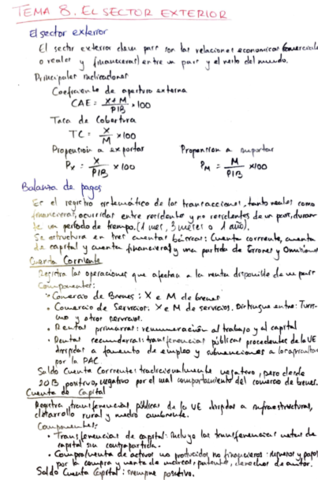 TEMA 8. EL SECTOR EXTERIOR
El sector exterior
El sector exterior de un país son las relaciones económicas (comerciales
o reales y financieras) entre un país y el resto del mundo.
Principales indicadores
Coeficiente de apertura externa
CAE = X+M / PIB × 100
Tasa de Cobertura
TC = X / M × 100
Propensión a exportar
Propensión a importar
Px = X / PIB × 100
PM = M / PIB × 100
Balanza de pagos
Es el registro sistemático de las transacciones, tanto reales como
financieras, ocurridas entre residentes y no residentes de un país, duran
te un período de tiempo. (1 mes, 3 meses o 1 año).
Se estructura en tres cuentas básicas: Cuenta corriente, cuenta
de capital y cuenta financiera y una partida de Errores y Omisiones
Cuenta Corriente
Registra las operaciones que afectan a la renta disponible de un país
Componentes:
• Comercio de Bienes: X e M de bienes
• Comercio de Servicios: X e M de servicios. Distingue entre: Turis
mo y otros servicios.
• Rentas primarias: remuneración al trabajo y al capital
• Rentas secundarias: transferencias públicas procedentes de la UE
dirigidas a fomento de empleo y subvenciones a los agricultores
por la PAC.
Saldo Cuenta Corriente: tradicionalmente negativo, pero desde
2013 positivo, negativo por el mal comportamiento del comercio de bienes.
Cuenta de Capital
Registra, transferencias públicas de la UE dirigidas a infraestructuras,
desarrollo rural y medio ambiente.
Componentes:
• Transferencias de capital: incluye las transferencias netas de
capital sin contrapartida.
• Compra/venta de activos no producidos no financieros: ingresos y pagos
por la compra y venta de marcas, patentes, derechos de autor.
Saldo Cuenta Capital: siempre positivo.